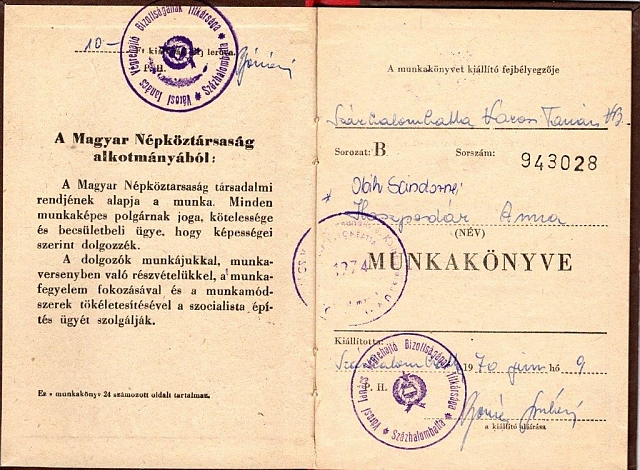 10-
Ft kir lerova.
P. H.
Városi Tanács Végrehajtó Bizottságának Titkársága ★ Százhalombatta ★
A Magyar Népköztársaság
alkotmányából:
A Magyar Népköztarsaság társadalmi
rendjének alapja a munka. Minden
munkaképes polgárnak joga, kötelessége
és becsületbeli ügye, hogy képességei
szerint dolgozzék.
A dolgozók munkájukkal, munka-
versenyben való részvételükkel, a munka-
fegyelem fokozásával és a munkamód-
szerek tökéletesítésével a szocialista épí-
tés ügyét szolgálják.
Ez a munkakönyv 24 számozott oldalt tartalmaz.
A munkakönyvet kiállító fejbélyegzője
Százhalombatta Városi Tanács VB.
Sorozat: B Sorszám: 943028
Oláh Sándorné
Hoszpodár Anna
(NÉV)
1274
MUNKAKÖNYVE
Kiállította:
Százhalombatta 1970 jún hó 9
P. H.
Városi Tanács Végrehajtó Bizottságának Titkársága ★ Százhalombatta ★
a kiállító aláírása